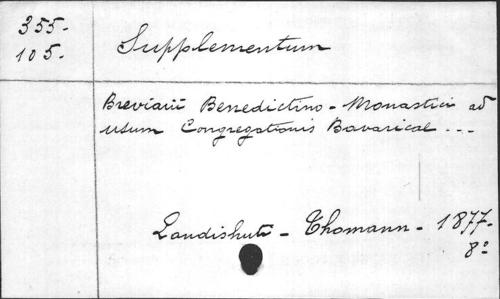 355.
105.
Supplementum
Breviarii Benedictino-Monastici ad
usum Congregationis Bavaricae ...
Landishuti - Thomann - 1877.
8º